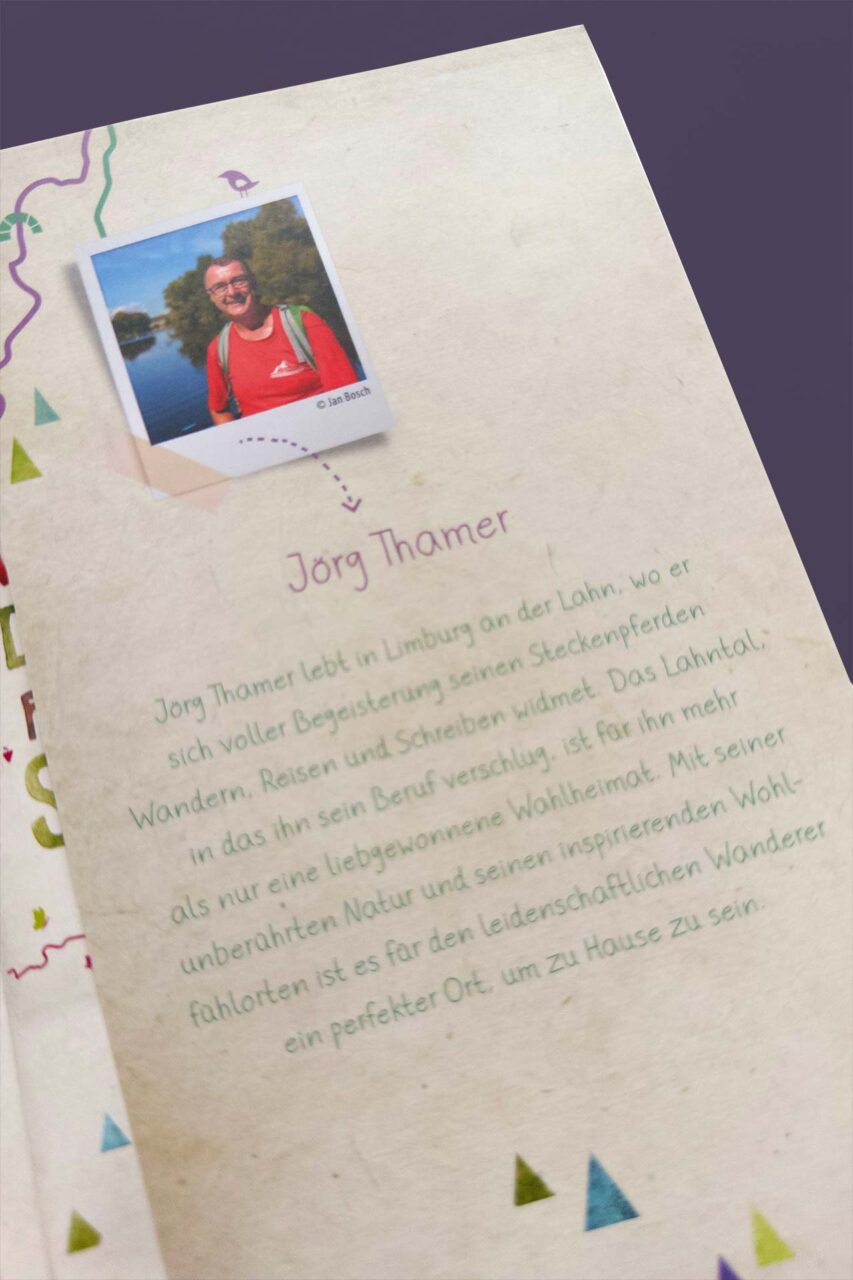 © Jan Bosch
Jörg Thamer
Jörg Thamer lebt in Limburg an der Lahn, wo er
sich voller Begeisterung seinen Steckenpferden
Wandern, Reisen und Schreiben widmet. Das Lahntal,
in das ihn sein Beruf verschlug, ist für ihn mehr
als nur eine liebgewonnene Wahlheimat. Mit seiner
unberührten Natur und seinen inspirierenden Wohl-
fühlorten ist es für den leidenschaftlichen Wanderer
ein perfekter Ort, um zu Hause zu sein.